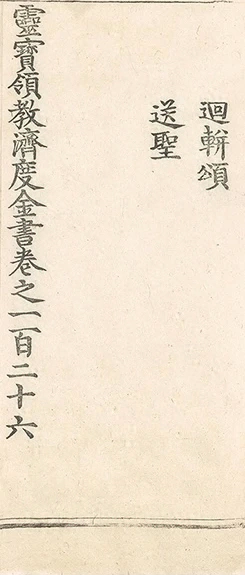 迴軿頌
送聖
靈寶領教濟度金書卷之一百二十六